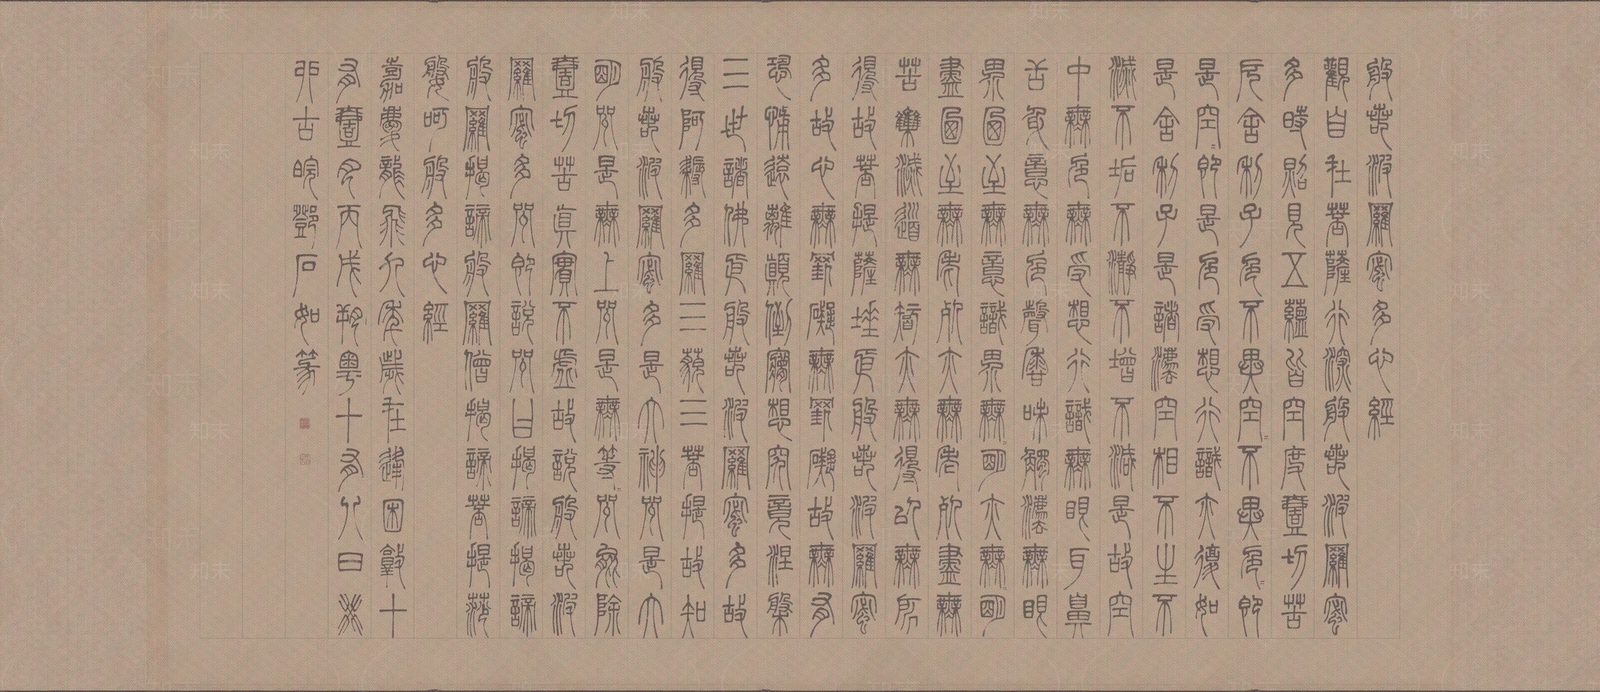 般若波羅蜜多心經
觀自在菩薩行深般若波羅蜜
多時照見五蘊皆空度壹切苦
厄舍利子色不異空=不異色=即
是空=即是色受想行識亦復如
是舍利子是諸法空相不生不
滅不垢不淨不增不減是故空
中無色無受想行識無眼耳鼻
舌身意無色聲香味觸法無眼
界乃至無意識界無=明亦無明
盡乃至無老死亦無老死盡無
苦集滅道無智亦無得以無所
得故菩提薩埵依般若波羅蜜
多故心無罣礙無罣礙故無有
恐怖遠離顛倒夢想究竟涅槃
三世諸佛依般若波羅蜜多故
得阿耨多羅三藐三菩提故知
般若波羅蜜多是大神咒是大
明咒是無上咒是無等=咒能除
壹切苦真實不虛故說般若波
羅蜜多咒即說咒曰揭諦揭諦
般羅揭諦般羅僧揭諦菩提莎
婆呵般多心經
嘉慶龍飛九年歲在逢困敦十
有壹月丙戌朔粵十有八日癸
卯古皖鄧石如篆
知末